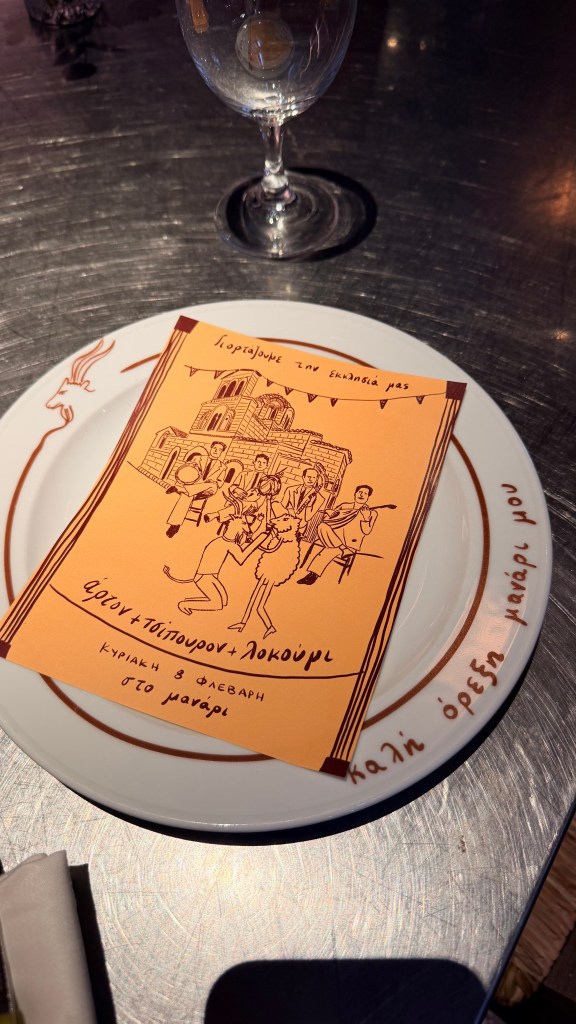 Γιορτάζουμε την εκκλησιά μας
άρτον + τσίπουρον + λοκούμι
ΚΥΡΙΑΚΗ 8 ΦΛΕΒΑΡΗ
στο μανάρι
καλή όρεξη μανάρι μου